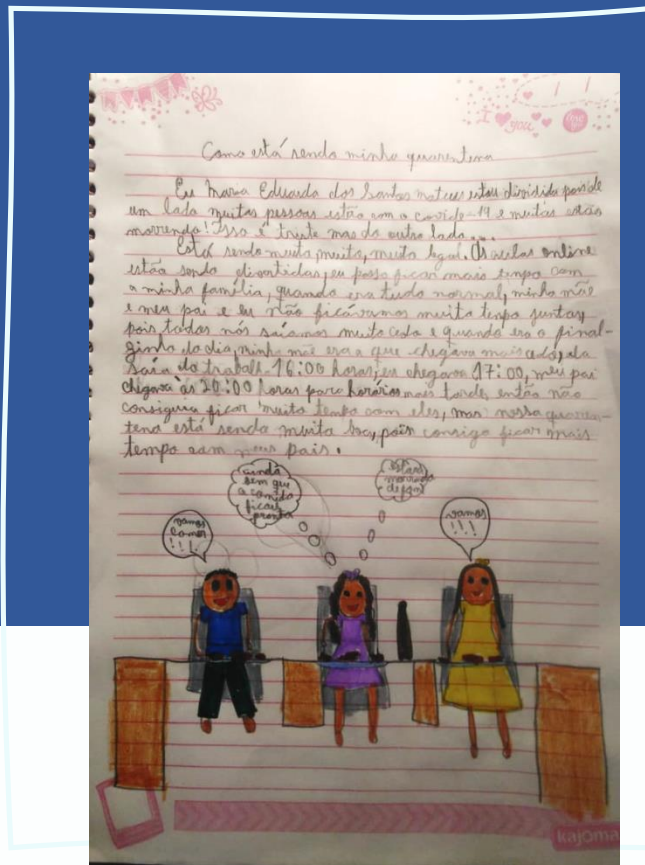 I ♥ you
Como está sendo minha quarentena
Eu Maria Eduarda dos Santos mateus estou dividida pois de
um lado muitas pessoas estão com a covide-19 e muitas estão
morrendo! Isso é triste mas do outro lado...
Está sendo muito, muito, muito legal. As aulas online
estão sendo divertidas, eu posso ficar mais tempo com
a minha família, quando era tudo normal, minha mãe
e meu pai e eu não ficávamos muito tempo juntos,
pois todos nós saíamos muito cedo e quando era o final-
zinho do dia, minha mãe era a que chegava mais cedo, ela
saía do trabalho 16:00 horas, e chegava 17:00, meu pai
chegava às 20:00 horas para horários mais tarde, então não
conseguia ficar muito tempo com eles, mas nossa quaren-
tena está sendo muito boa, pois consigo ficar mais
tempo com meus pais.
ainda
bem que
a comida
ficou
pronta
morrendo
de fome
vamos
comer
!!!
vamos
!!!
kajoma